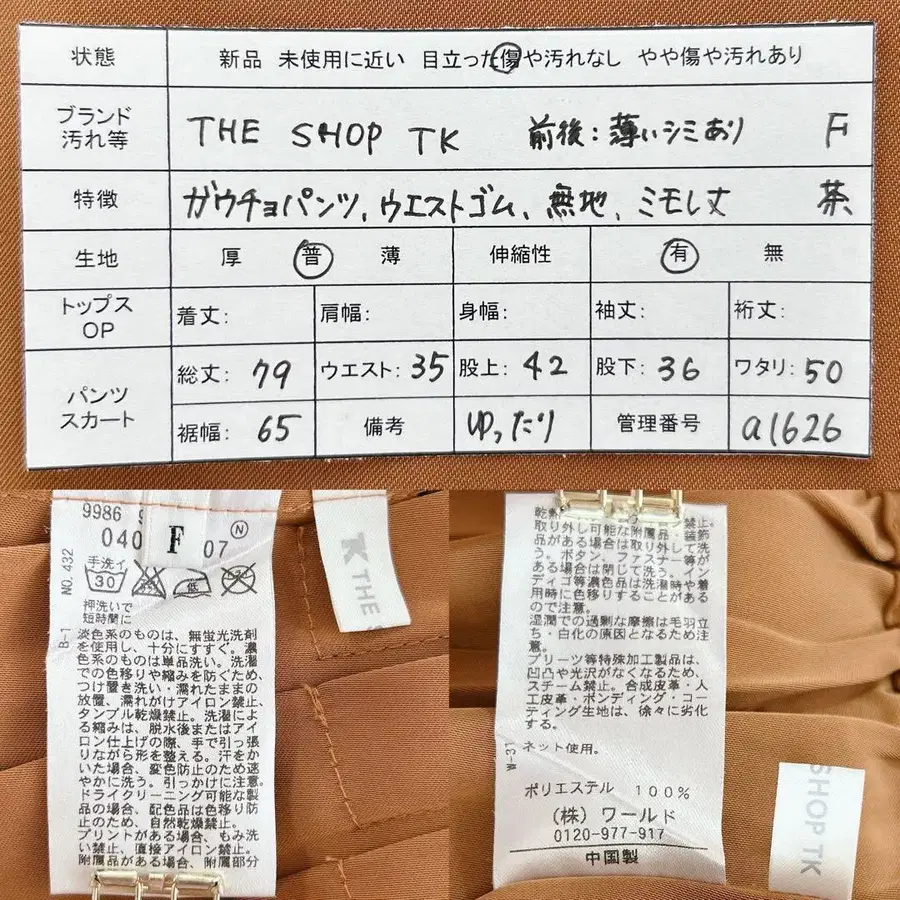 状態 新品 未使用に近い 目立った傷や汚れなし やや傷や汚れあり
ブランド
汚れ等 THE SHOP TK 前後:薄いシミあり F
特徴 ガウチョパンツ、ウエストゴム、無地、ミモレ丈 茶
生地 厚 普 薄 伸縮性 有 無
トップス
OP 着丈: 肩幅: 身幅: 袖丈: 裄丈:
パンツ
スカート
総丈: 79 ウエスト: 35 股上: 42 股下: 36 ワタリ: 50
裾幅: 65 備考 ゆったり 管理番号 a1626
9986
040 F 07 N
NO.432
手洗イ
30 低
B-1
押洗いで
短時間に
淡色系のものは、無蛍光洗剤
を使用し、十分にすすぐ。濃
色系のものは単品洗い。洗濯
での色移りや縮みを防ぐため、
つけ置き洗い・濡れたままの
放置、濡れがけアイロン禁止、
タンブル乾燥禁止。洗濯によ
る縮みは、脱水後またはアイ
ロン仕上げの際、手で引っ張
りながら形を整える。汗をか
いた場合、変色防止のため速
やかに洗う。引っかけに注意。
ドライクリーニング可能な製
品の場合、配色品は色移り防
止のため、自然乾燥禁止。
プリントがある場合、もみ洗
い禁止、直接アイロン禁止。
附属品がある場合、附属部分
TK THE S
取り外し可能な附属品・装飾
品がある場合は取り外して洗
う。ボタン、ファスナー等が
ある場合は閉じて洗う。イン
ディゴ等濃色品は洗濯時や着
用時に色移りすることがある
ので注意。
湿潤での過剰な摩擦は毛羽立
ち・白化の原因となるため注
意。
プリーツ等特殊加工製品は、
凹凸や光沢がなくなるため、
スチーム禁止。合成皮革・人
工皮革・ボンディング・コー
ティング生地は、徐々に劣化
する。
W-31
ネット使用。
ポリエステル 100%
(株)ワールド
0120-977-917
中国製
SHOP TK